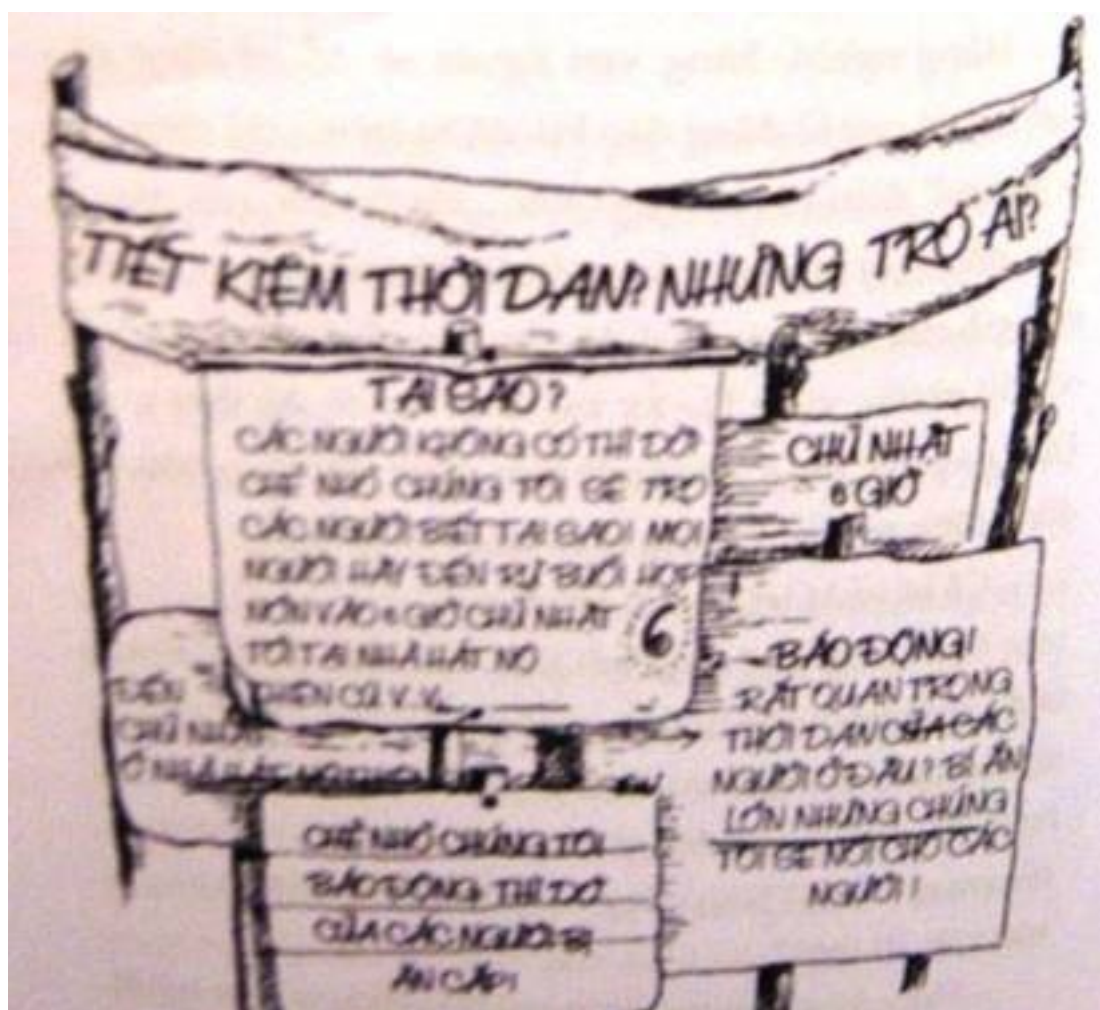 TIẾT KIỆM THỜI DAN? NHƯNG TRO AI?
TẠI SAO?
CÁC NGƯỜI KHÔNG CÓ THÌ DỜ!
CHẺ NHỎ CHÚNG TÔI SẼ TRO
CÁC NGƯỜI BIẾT TẠI SAO! MỌI
NGƯỜI HÃY ĐẾN RỰ BUỔI HỌP
NỚN VÀO 6 GIỜ CHỦ NHẬT
TỚI TẠI NHÀ HÁT NỘ
THIÊN CŨ V.V.
6
CHỦ NHẬT
6 GIỜ
ĐẾN
CHỦ NHẬT
Ở NHÀ HÁT
BÁO ĐỘNG!
RẤT QUAN TRỌNG
THỜI DAN CỦA CÁC
NGƯỜI Ở ĐÂU? BÍ ẨN
LỚN NHƯNG CHÚNG
TÔI SẼ NÓI CHO CÁC
NGƯỜI!
CHẺ NHỎ CHÚNG TÔI
BÁO ĐỘNG THÌ DỜ
CỦA CÁC NGƯỜI BỊ
ĂN CẮP!